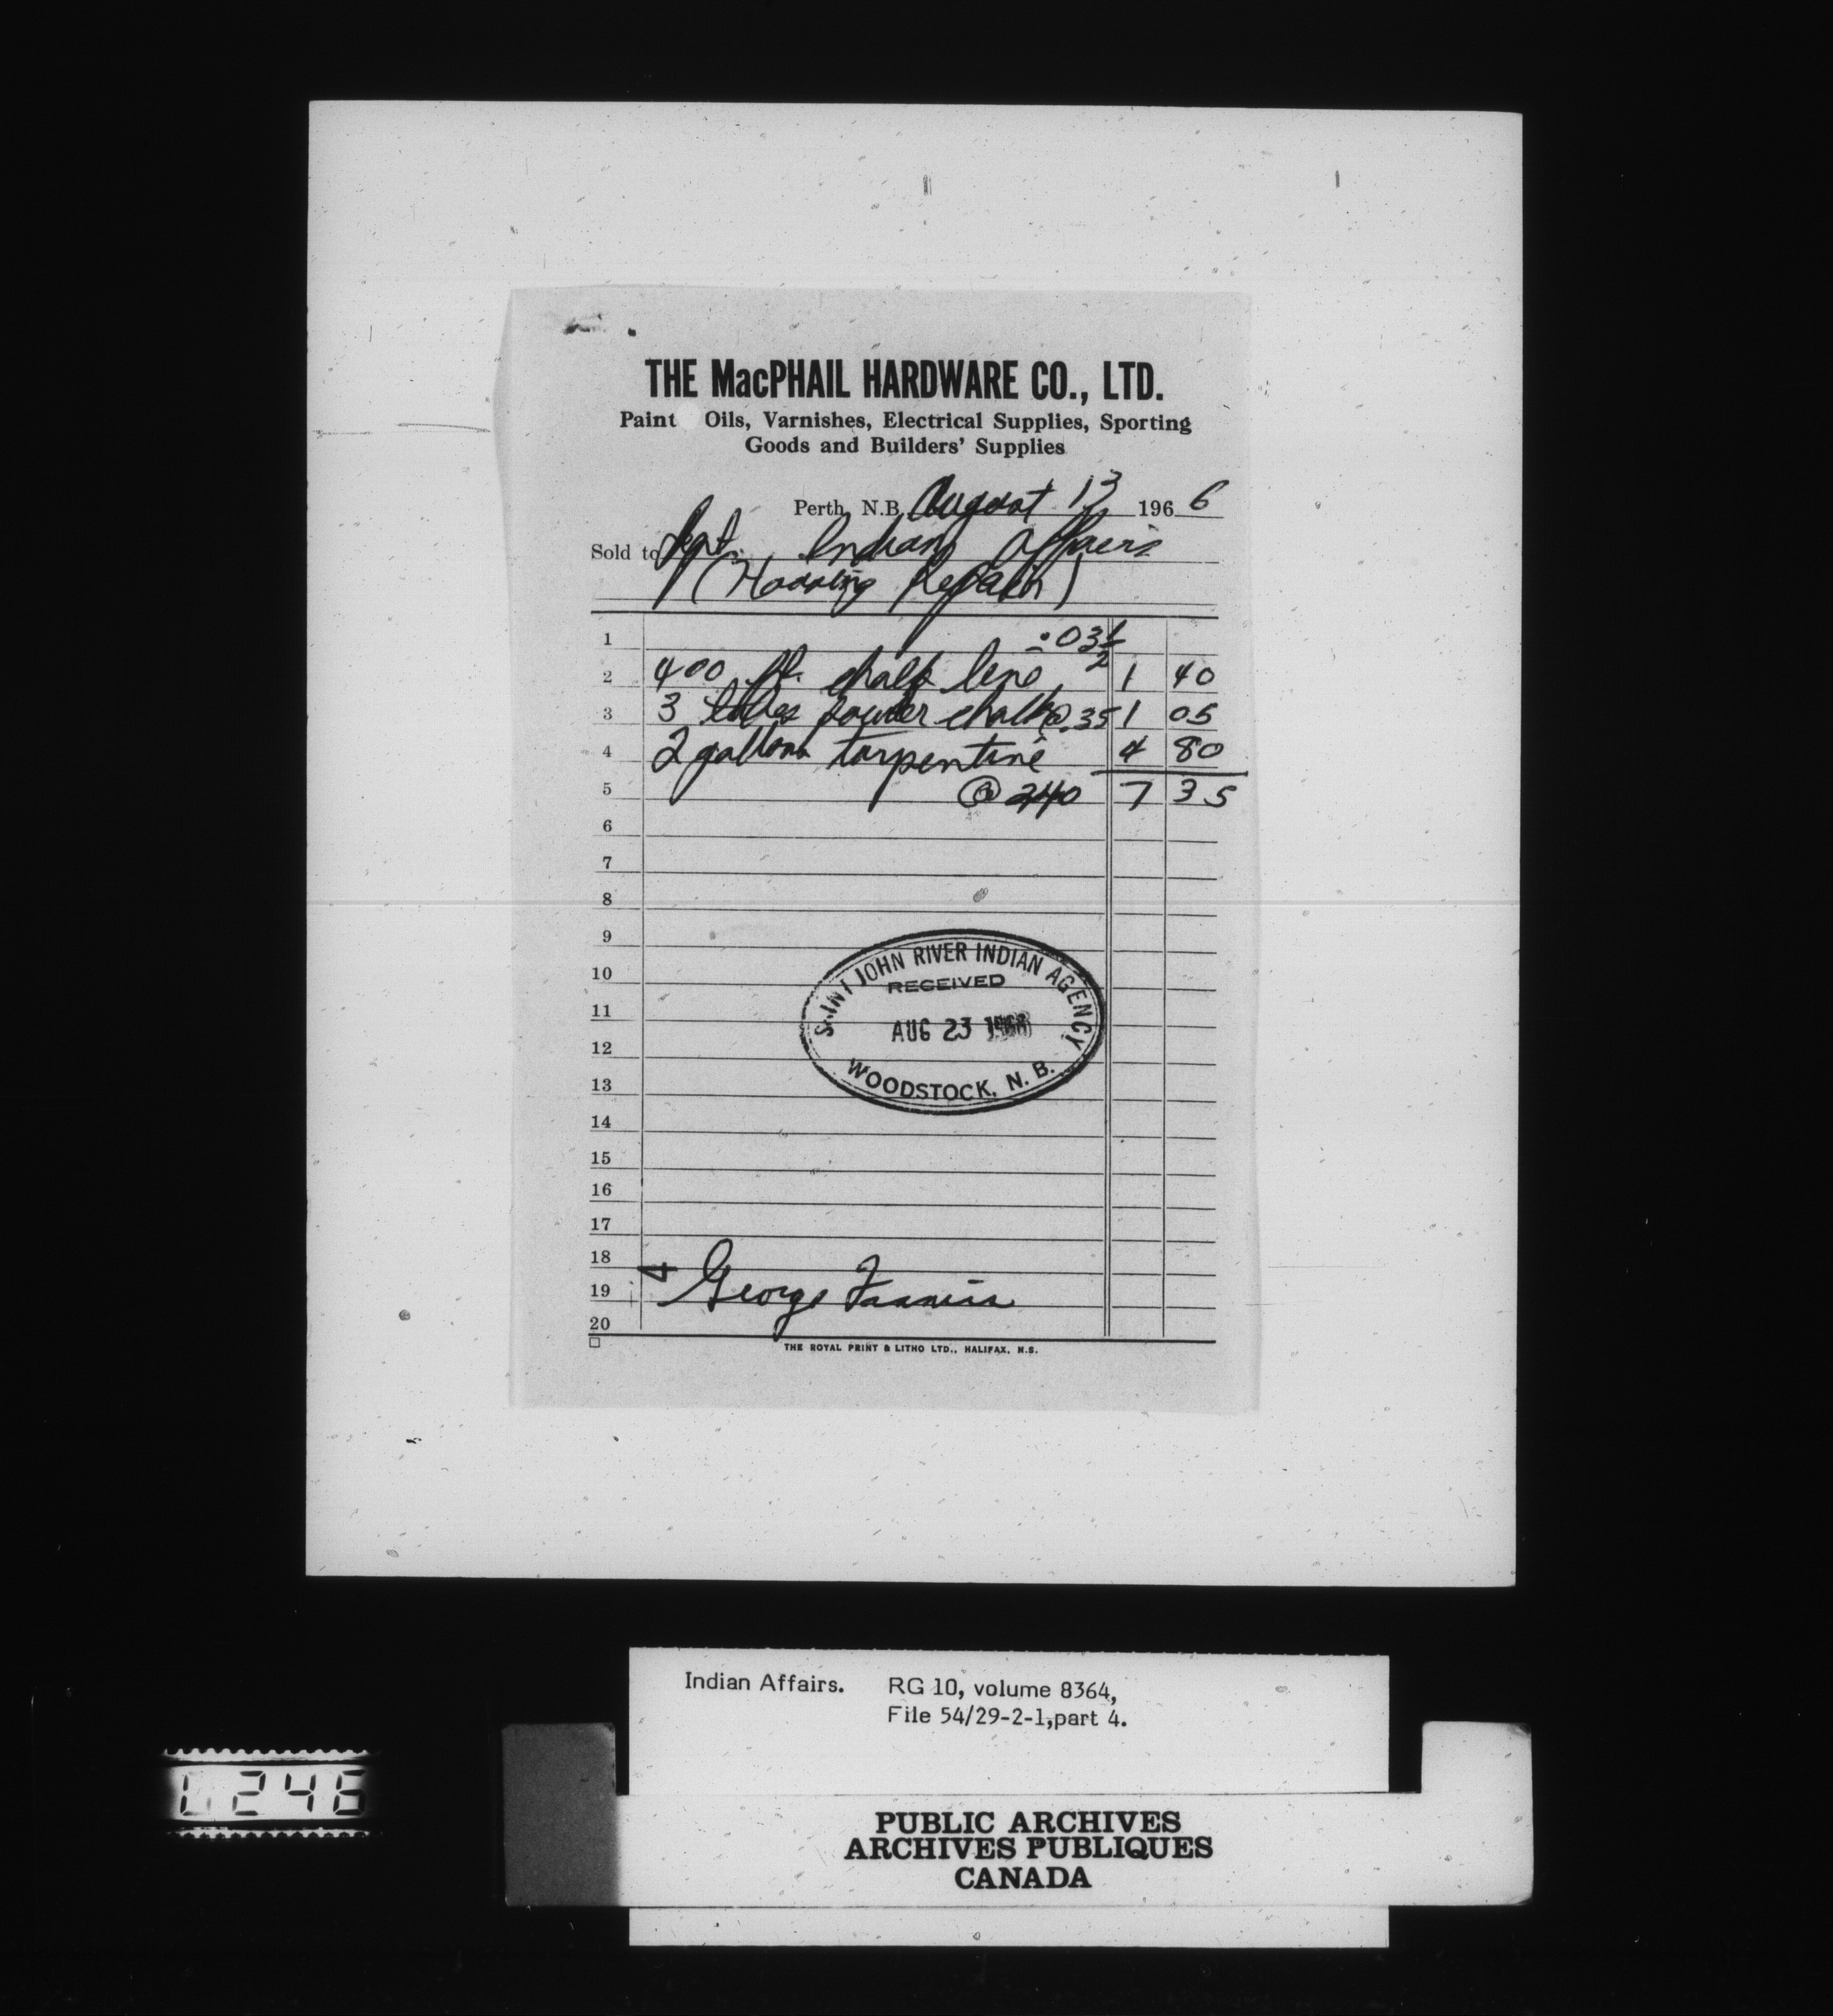 THE MacPHAIL HARDWARE CO., LTD.
Paint Oils, Varnishes, Electrical Supplies, Sporting
Goods and Builders' Supplies
Perth, N.B. August 13 1966
Sold to Dept. Indian Affairs
(Housing Repair)
1 .03 1/2
2 400 ft. chalk line 1 40
3 3 tubes powder chalk @ .35 1 05
4 2 gallons turpentine 4 80
5 @ 240 7 35
6
7
8
9
SAINT JOHN RIVER INDIAN AGENCY
10
RECEIVED
11
AUG 23 1966
12
WOODSTOCK, N. B.
13
14
15
16
17
18
19 George Francis
20
THE ROYAL PRINT & LITHO LTD., HALIFAX, N.S.
Indian Affairs. RG 10, volume 8364,
File 54/29-2-1,part 4.
246
PUBLIC ARCHIVES
ARCHIVES PUBLIQUES
CANADA